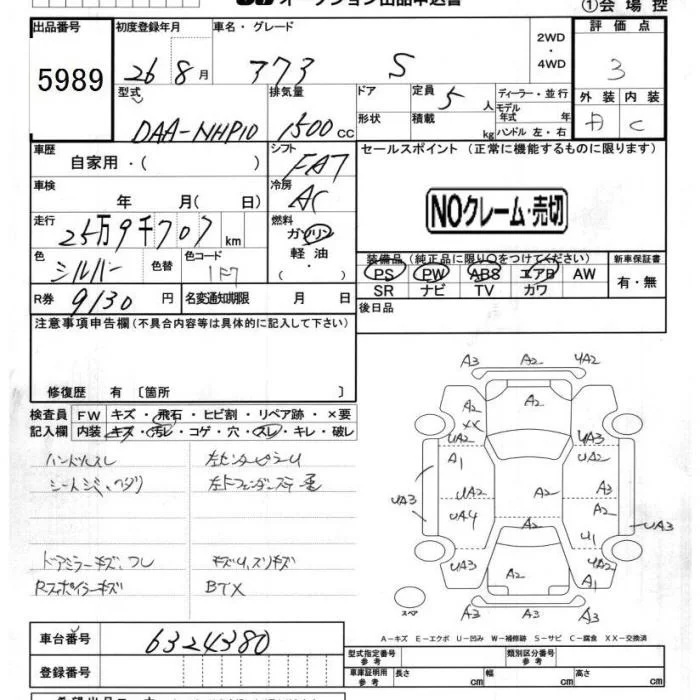 オークション出品申込書
①会場控
出品番号 初度登録年月 車名・グレード 2WD・4WD 評価点
5989 26年8月 373 S 3
型式 排気量 ドア 定員 5人 ディーラー・並行 外装 内装
DAA-NHP10 1500CC 形状 積載 kg モデル年式 年 ハンドル 左・右 A C
車歴 自家用・( ) シフト FAT セールスポイント (正常に機能するものに限ります)
車検 年 月( 日) 冷房 AC
NOクレーム・売切
走行 25万9千707km 燃料 ガソリン 軽油・( )
色 シルバー 色替 色コード 1F7
装備品 (純正品に限り○をつけてください) 新車保証書
PS PW ABS エアB AW 有・無
SR ナビ TV カワ
R券 9130円 名変通知期限 月 日
後日品
注意事項申告欄 (不具合内容等は具体的に記入して下さい)
修復歴 有 〔箇所 〕
検査員 FW キズ・飛石・ヒビ割・リペア跡・×要
記入欄 内装 キズ・汚レ・コゲ・穴・スレ・キレ・破レ
ハンドルスレ 左センターピラーU
シートシミ、ヘタリ
ドアミラーキズ、スレ キズU、スリキズ
Rスポイラーキズ BTX
A3 A2 YA2
A2 A2
XX
UA2 YA3
A1 UA2
UA2 A2 A3
UA3 UA4 A2 A2 U1 UA3
UA3 A2 YA2
A1
A3 A2 A3
スペア
A-キズ E-エクボ U-凹み W-補修跡 S-サビ C-腐食 XX-交換済
車台番号 6324380
型式指定番号 参考 類別区分番号 参考
登録番号 車庫証明用 参考 長さ cm 幅 cm 高さ cm